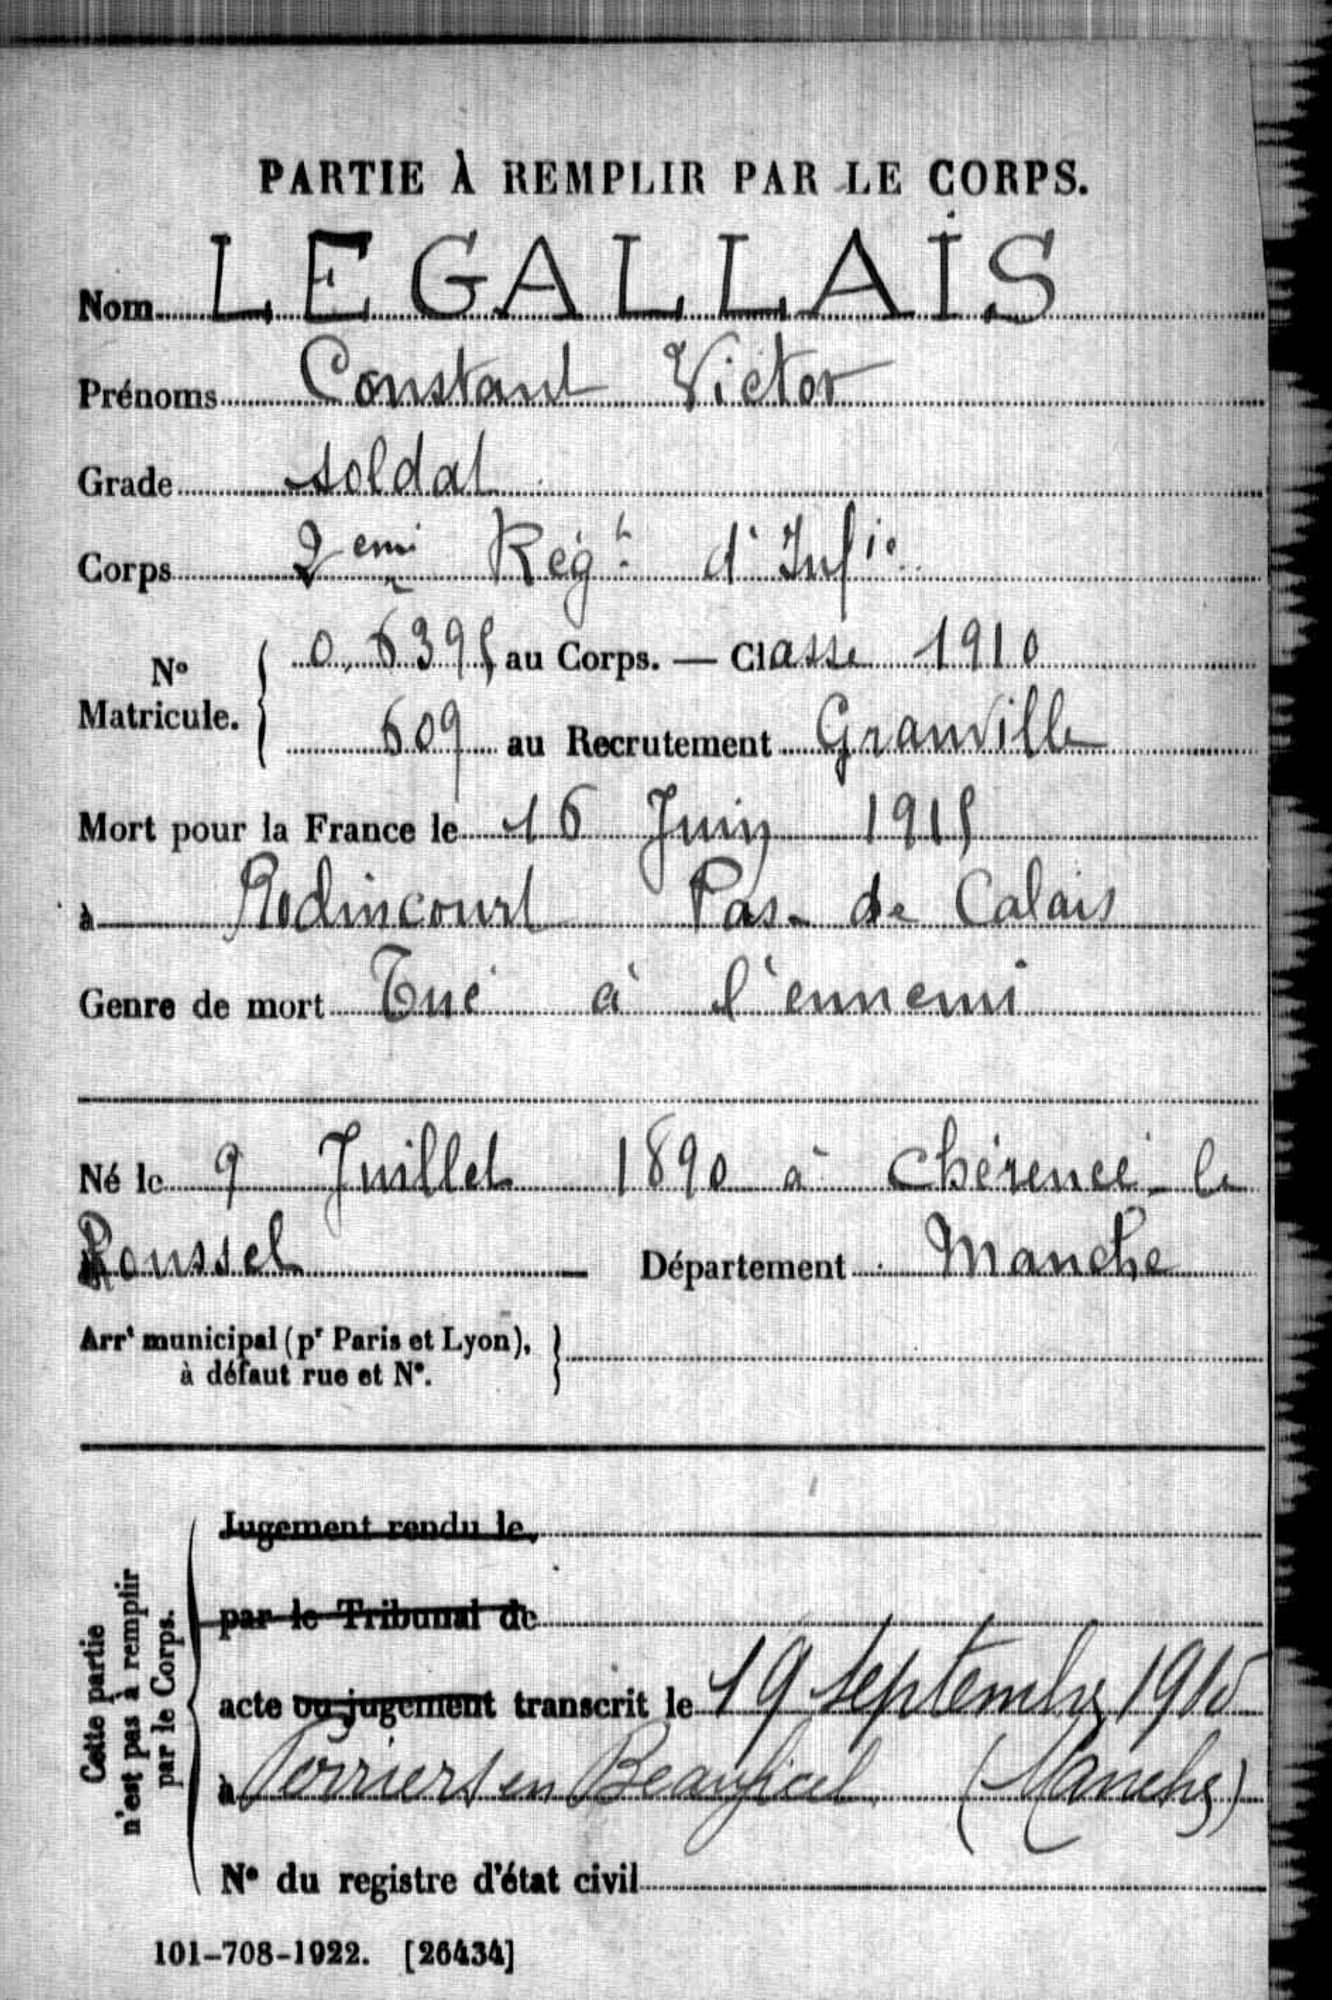 PARTIE À REMPLIR PAR LE CORPS.
Nom LEGALLAIS
Prénoms Constant Victor
Grade soldat
Corps 2eme Régt d'Infie
No Matricule. 0.6395 au Corps. — Classe 1910
609 au Recrutement Granville
Mort pour la France le 16 Juin 1915
à Rodincourt Pas-de Calais
Genre de mort Tué à l'ennemi
Né le 9 Juillet 1890 à Chérencé-le
Roussel Département Manche
Arrt municipal (pr Paris et Lyon),
à défaut rue et No.
Cette partie
n'est pas à remplir
par le Corps.
Jugement rendu le,
par le Tribunal de
acte ou jugement transcrit le 19 septembre 1915
à Perriers en Beauficel (Manche)
No du registre d'état civil
101-708-1922. [26434]